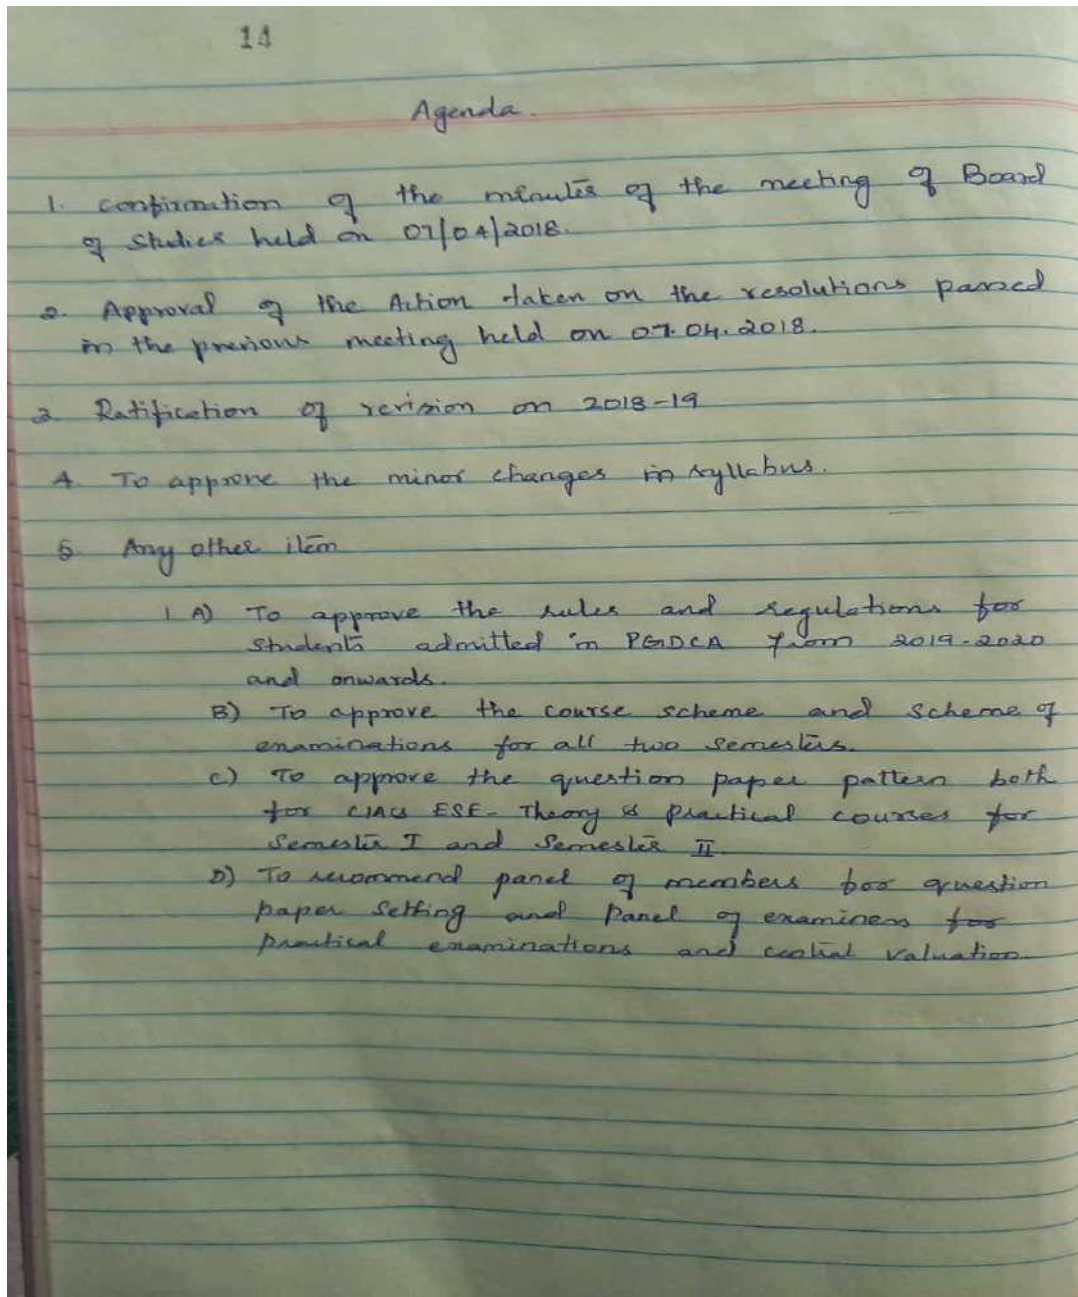 14
Agenda.
1. Confirmation of the minutes of the meeting of Board
of Studies held on 07/04/2018.
2. Approval of the Action taken on the resolutions passed
in the previous meeting held on 07.04.2018.
3 Ratification of revision on 2018-19
4. To approve the minor changes in syllabus.
5. Any other item
1 A) To approve the rules and regulations for
students admitted in PGDCA from 2019-2020
and onwards.
B) To approve the course scheme and scheme of
examinations for all two semesters.
c) To approve the question paper pattern both
for ESE- Theory & Practical courses for
Semester I and Semester II
D) To recommend panel of members for question
paper Setting and Panel of examiners for
practical examinations and central valuation.